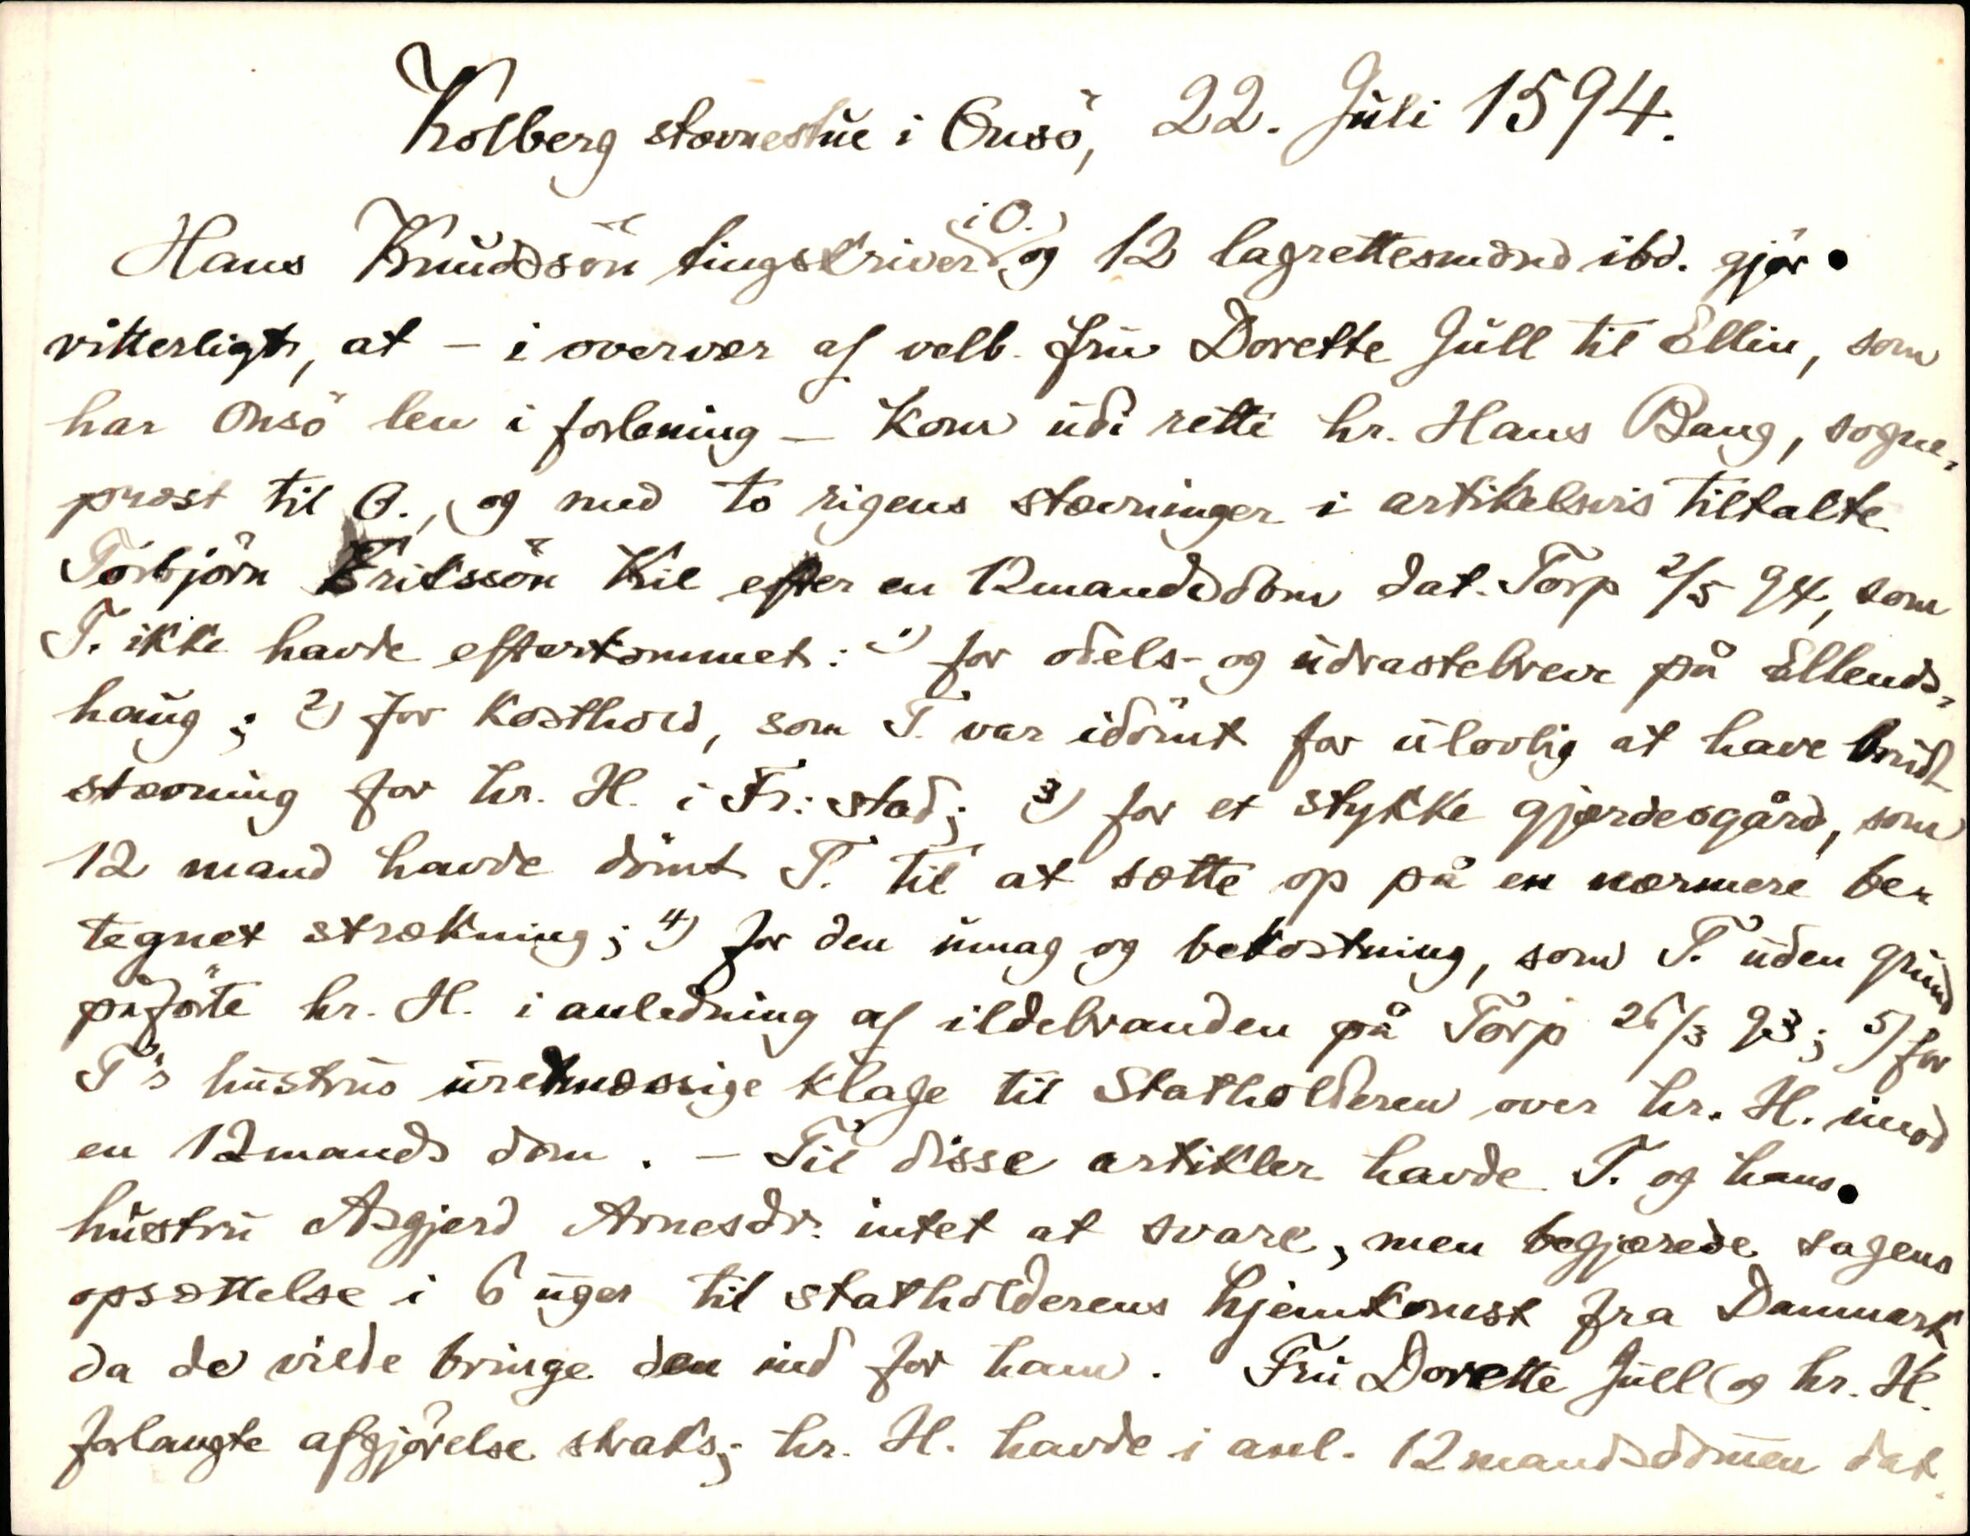 Kolberg stævnestue i Onsö, 22. Juli 1594.
Hans Knuddsön tingskriver (i O.) og 12 lagrettesmænd ibd. gjør
vitterligt, at – i overvær af velb. fru Dorette Jull til Ellin, som
har Onsö len i forlening – kom udi rette hr. Hans Bang, sogne-
præst til O., og med to rigens stævninger i artikelvis tiltalte
Torbjörn Eriksson Kil efter en 12mandsdom dat. Torp 2/5 94, som
T. ikke havde efterkommet: 1) for odels- og udrastebreve på Ellends-
haug; 2) for kosthold, som T. var idömt for ulovlig at have brudt
stævning for hr. H. i Fr:stad; 3) for et stykke gjærdesgård, som
12 mand havde dömt T. til at sætte op på en nærmere be-
tegnet strækning; 4) for den umag og bekostning, som T. uden grund
påförte hr. H. i anledning af ildebranden på Torp 26/3 93; 5) for
T's hustrus uretmæssige klage til Statholderen over hr. H. imod
en 12mands dom. – Til disse artikler havde T. og hans
hustru Asgjerd Arnesdr. intet at svare, men begjærede sagens
opsættelse i 6 uger til statholderens hjemkomst fra Danmark
da de vilde bringe den ind for ham. Fru Dorette Jull og hr. H.
forlangte afgjörelse straks; hr. H. havde i anl. 12mandsdommen dat.